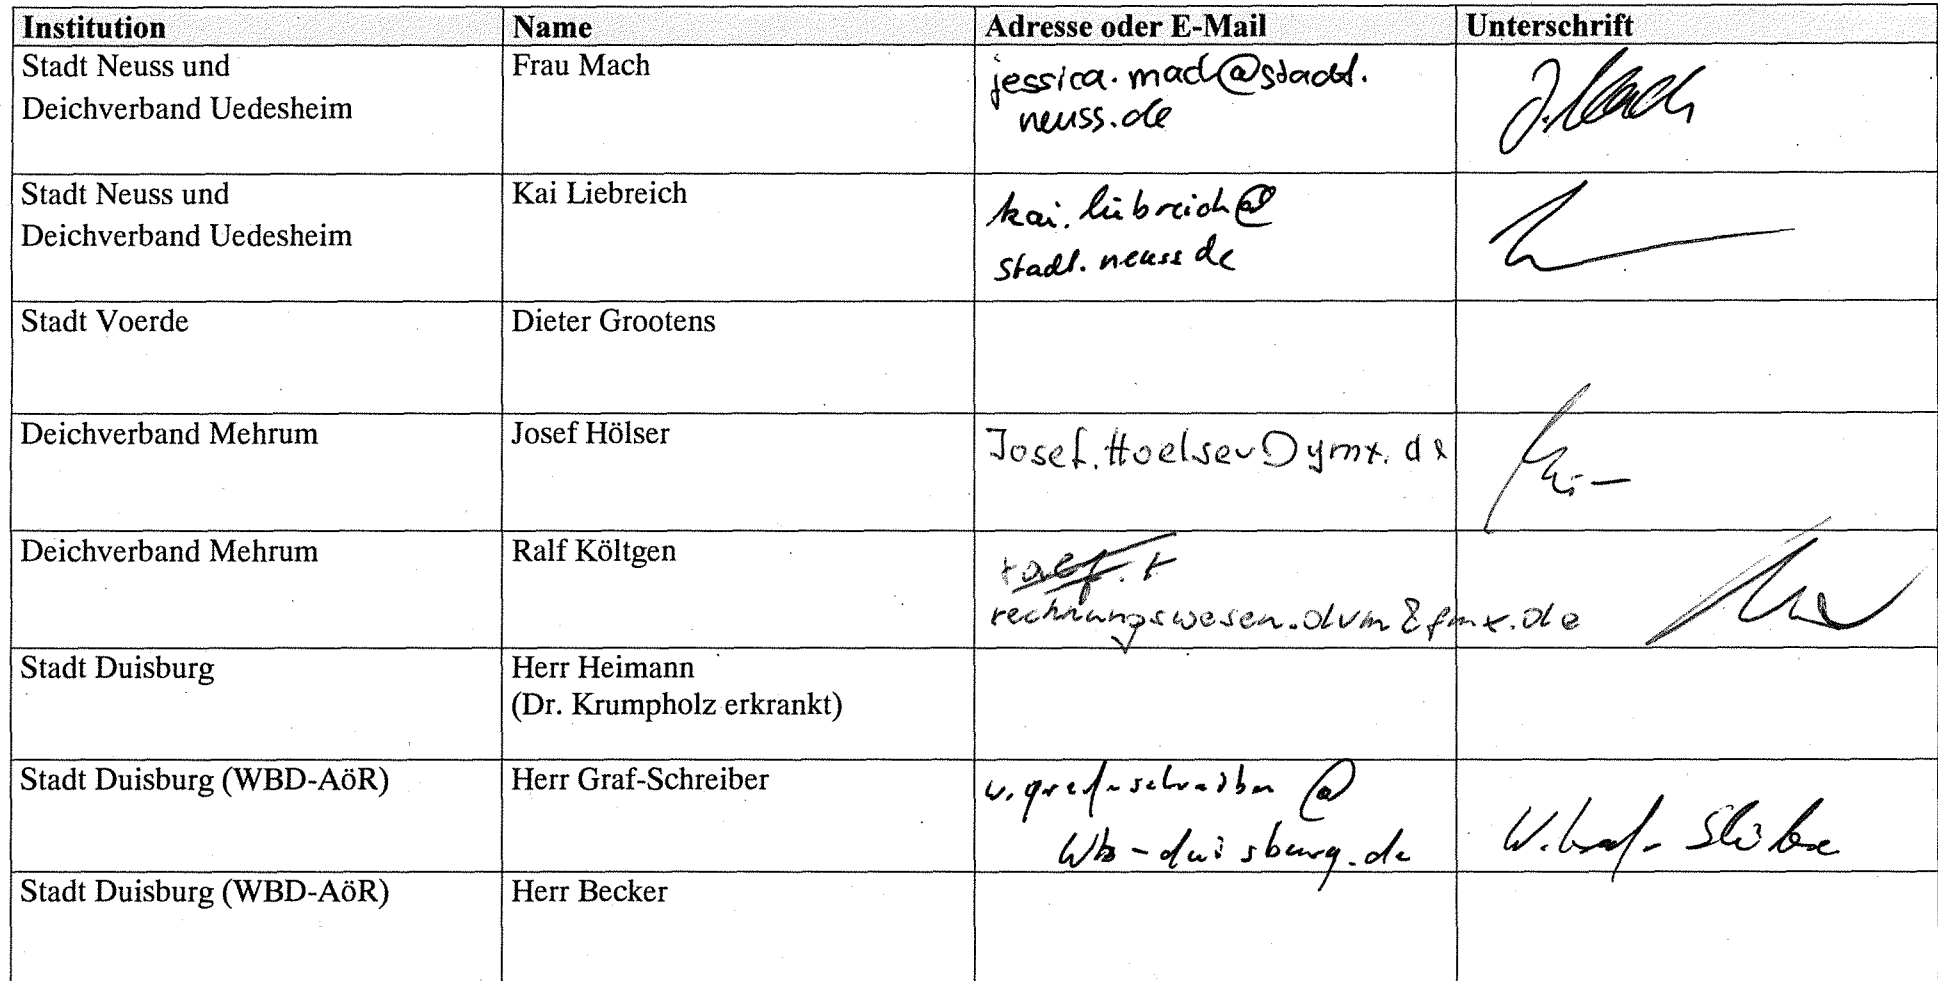 Institution Name Adresse oder E-Mail Unterschrift
Stadt Neuss und Frau Mach jessica.mach@stadt.
Deichverband Uedesheim neuss.de J. Mach
Stadt Neuss und Kai Liebreich kai.liebreich@
Deichverband Uedesheim stadt.neuss de
Stadt Voerde Dieter Grootens
Deichverband Mehrum Josef Hölser Josef.Hoelser@gmx.de
Deichverband Mehrum Ralf Költgen ralf.k
rechnungswesen.dvm@gmx.de
Stadt Duisburg Herr Heimann
(Dr. Krumpholz erkrankt)
Stadt Duisburg (WBD-AöR) Herr Graf-Schreiber w.graf-schreiber @
wb-duisburg.de W. Graf-Schreiber
Stadt Duisburg (WBD-AöR) Herr Becker